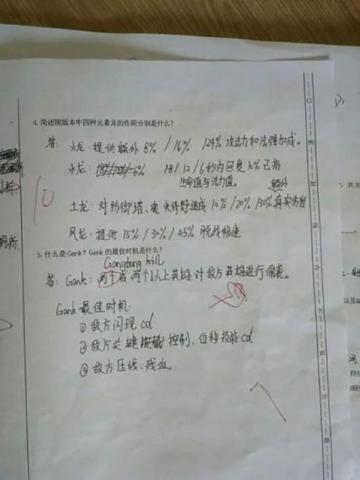 4. 简述现版本中四种元素龙的作用分别是什么?
答: 火龙: 提供额外 8% / 16% / 24% 攻击力和法强加成。
水龙: 18 / 12 / 6秒内回复
生命值与法力值。
10
土龙: 对防御塔、 10% / 20% / 30% 真实伤害
风龙: 提供 15% / 30% / 45% 脱战移速
5. 什么是Gank? Gank的最佳时机是什么?
Gangbang kill
答: Gank: 两个以上英雄对敌方英雄进行
Gank最佳时机:
① 敌方闪现cd
② 敌方关键 控制、位移技能cd
③ 敌方压线、残血。
7